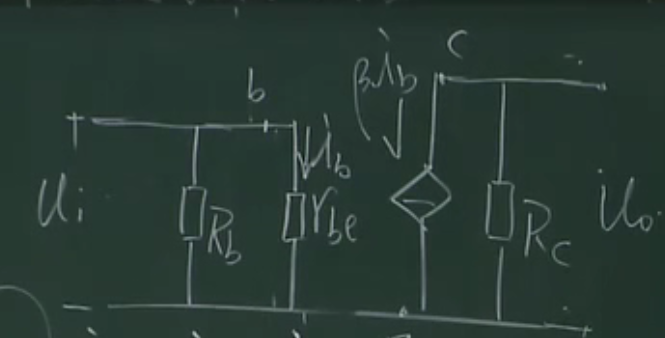 c
βi̇b
b
+
i̇b
U̇i
Rb
rbe
Rc
U̇o
-